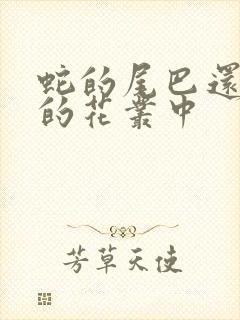 蛇的尾巴還
的花叢中
芳草天使